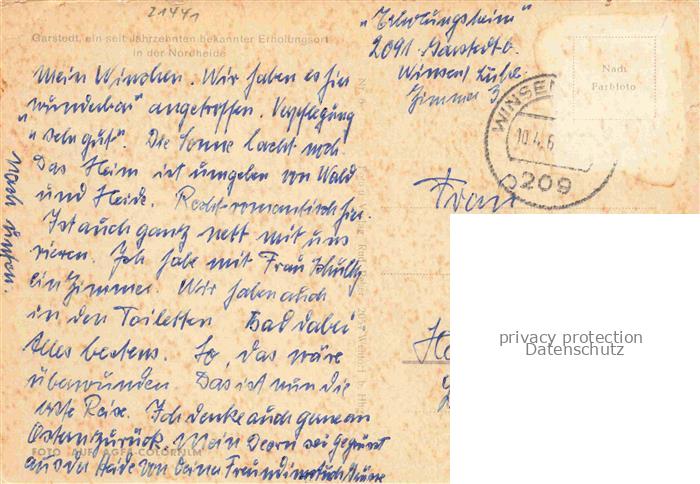 21441
Garstedt, ein seit Jahrzehnten bekannter Erholungsort
in der Nordheide
"Erholungsheim"
2091 Garstedt b.
Winsen Luhe.
Zimmer 3
Nach
Farbfoto
WINSEN
10.4.6
209
Mein Winchen. Wir haben es hier
wunderbar angetroffen. Verpflegung
"sehr gut". Die Sonne lacht noch
Das Heim ist umgeben von Wald
und Heide. Recht romantisch hier.
Ist auch ganz nett mit uns
vieren. Ich habe mit Frau Schultz
ein Zimmer. Wir haben auch
in den Toiletten Bad dabei
Alles bestens. So, das wäre
überwunden. Das ist nun die
erste Reise. Ich denke auch gerne an
Ostern zurück. Mein Deern sei gegrüsst
aus der Heide von deiner Freundin
Noch unten.
Frau
privacy protection
Datenschutz
FOTO AUF AGFA-COLORFILM